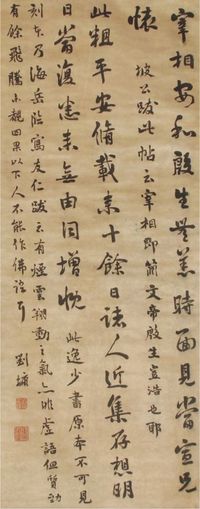 宰相安和殷生無恙時面見當宣兄
懷 坡公跋此帖云宰相即簡文帝殷生豈浩也耶
此粗平安脩載來十餘日諸人近集存想明
日當復悉來無由同增慨 此逸少書原本不可見
刻本乃海岳臨寫友仁跋云有煙雲翔動之氣亦非虛語但質勁
有餘飛騰小 四累以下人不能作 劉墉